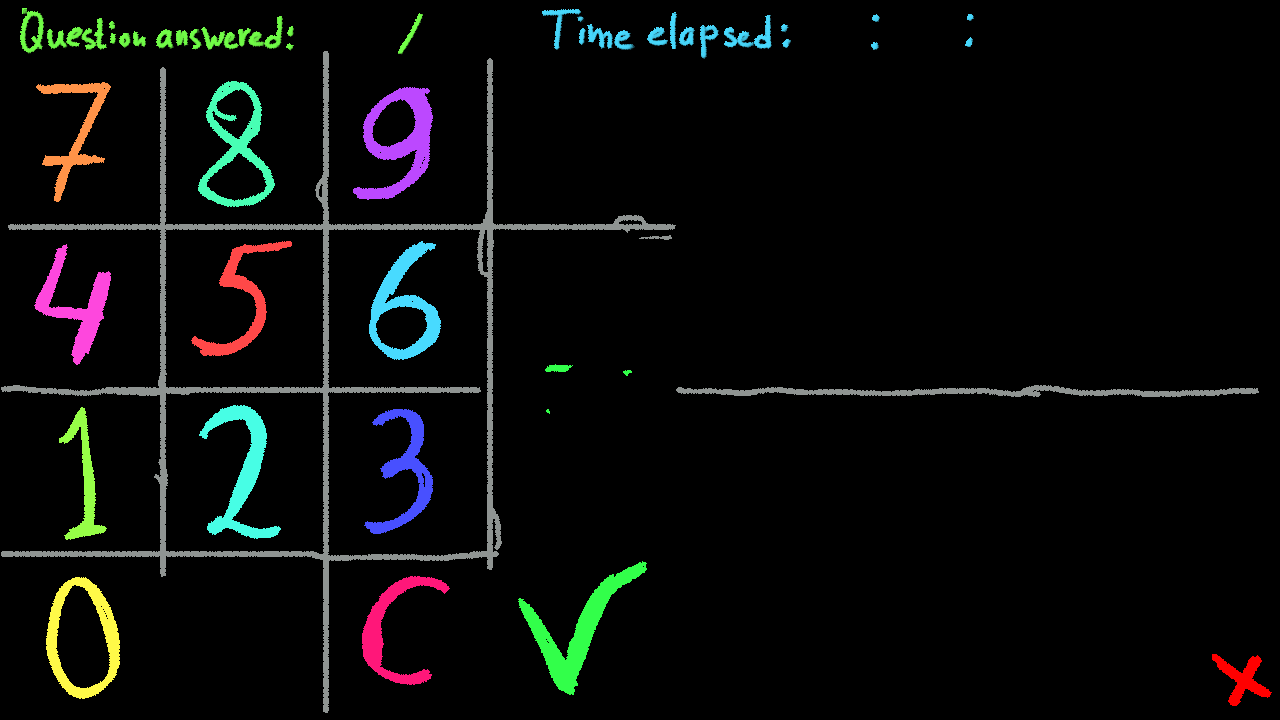 Question answered: / Time elapsed: : :
7 8 9
4 5 6
1 2 3
0 C